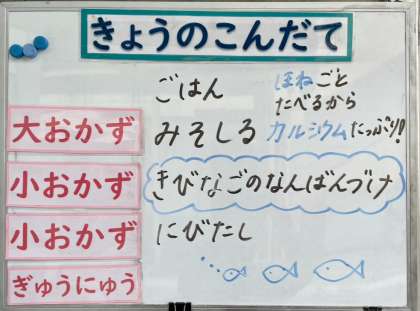 きょうのこんだて
ごはん
ほねごと
たべるから
カルシウムたっぷり!
大おかず
みそしる
小おかず
きびなごのなんばんづけ
小おかず
にびたし
ぎゅうにゅう